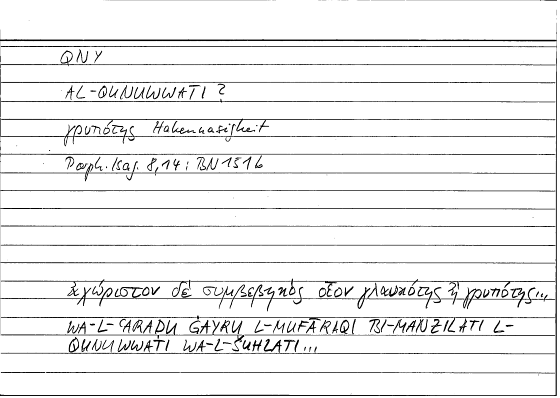 QNY
AL-QUNUWWATI ?
γρυπότης Hakennasigkeit
Porph. Isag. 8,14 ; BN 151b
ἀχώριστον δὲ συμβεβηκὸς οἷον γλαυκότης ἢ γρυπότης...
WA-L-ʿARAḌU ĠAYRU L-MUFĀRAQI BI-MANZILATI L-
QUNUWWATI WA-L-ŠUHLATI...